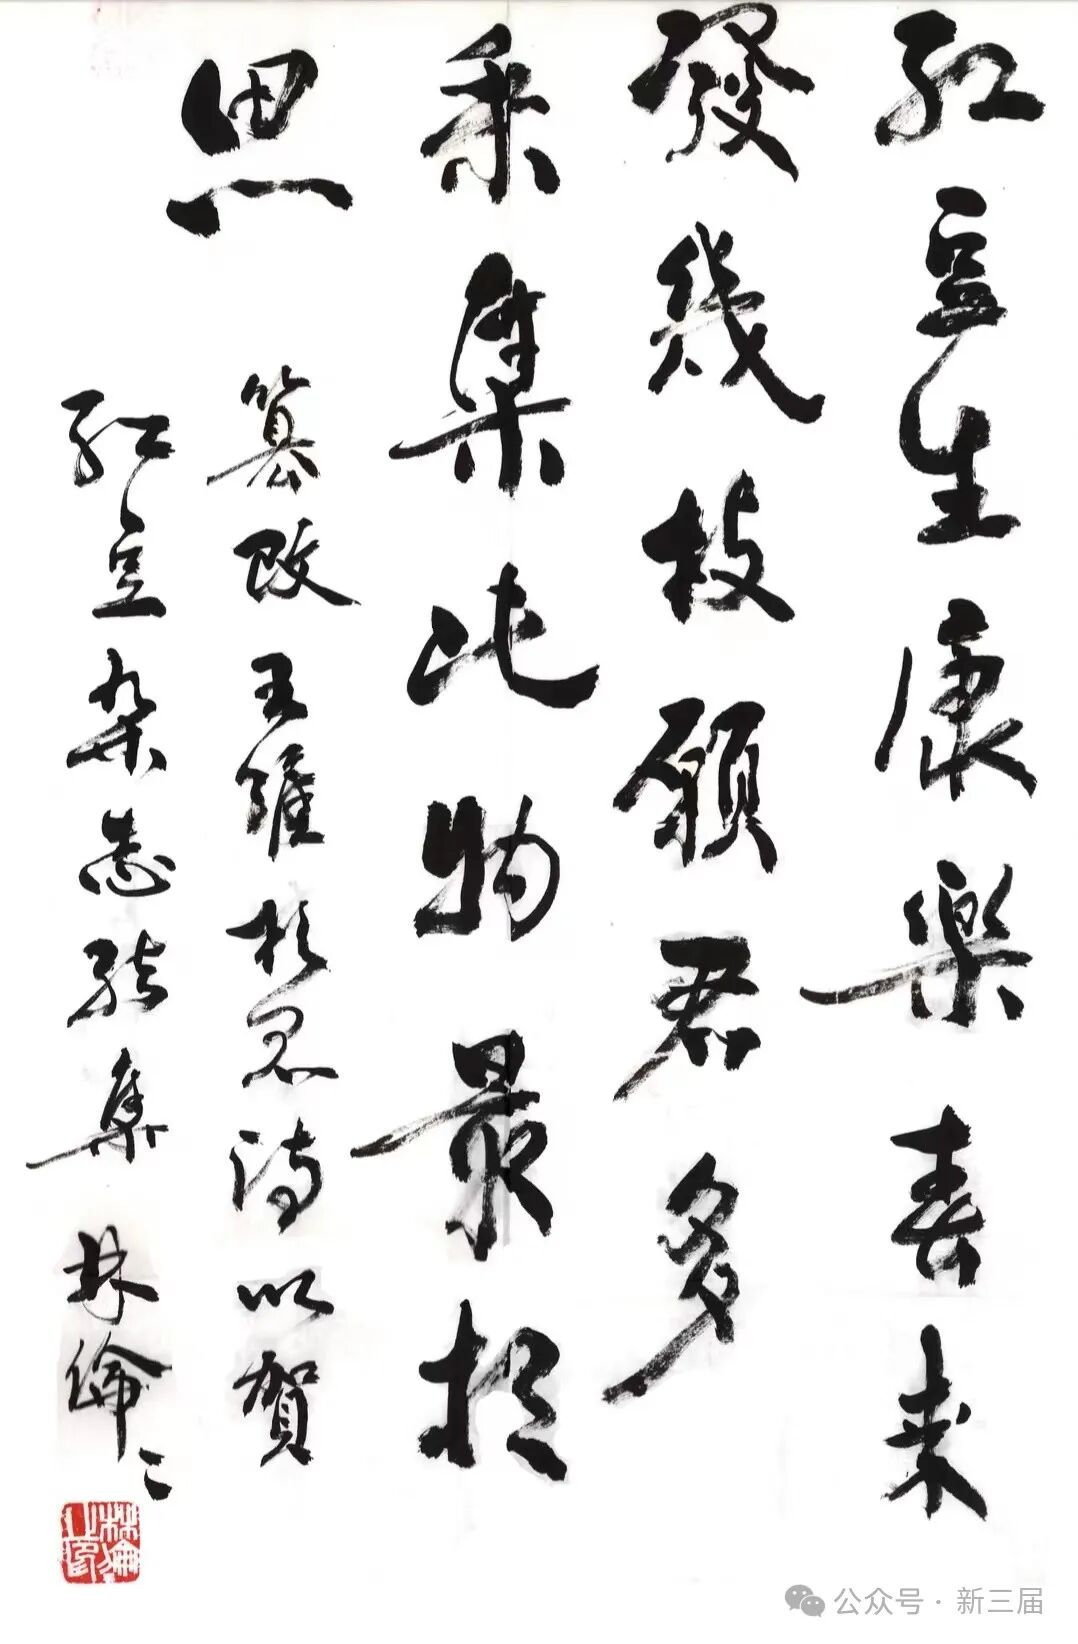 紅豆生康樂春来
發幾枝願君多
采集此物最相
思
篡改王維相思詩以賀
紅豆杂志結集 林倫〻
林倫之印
公众号·新三届